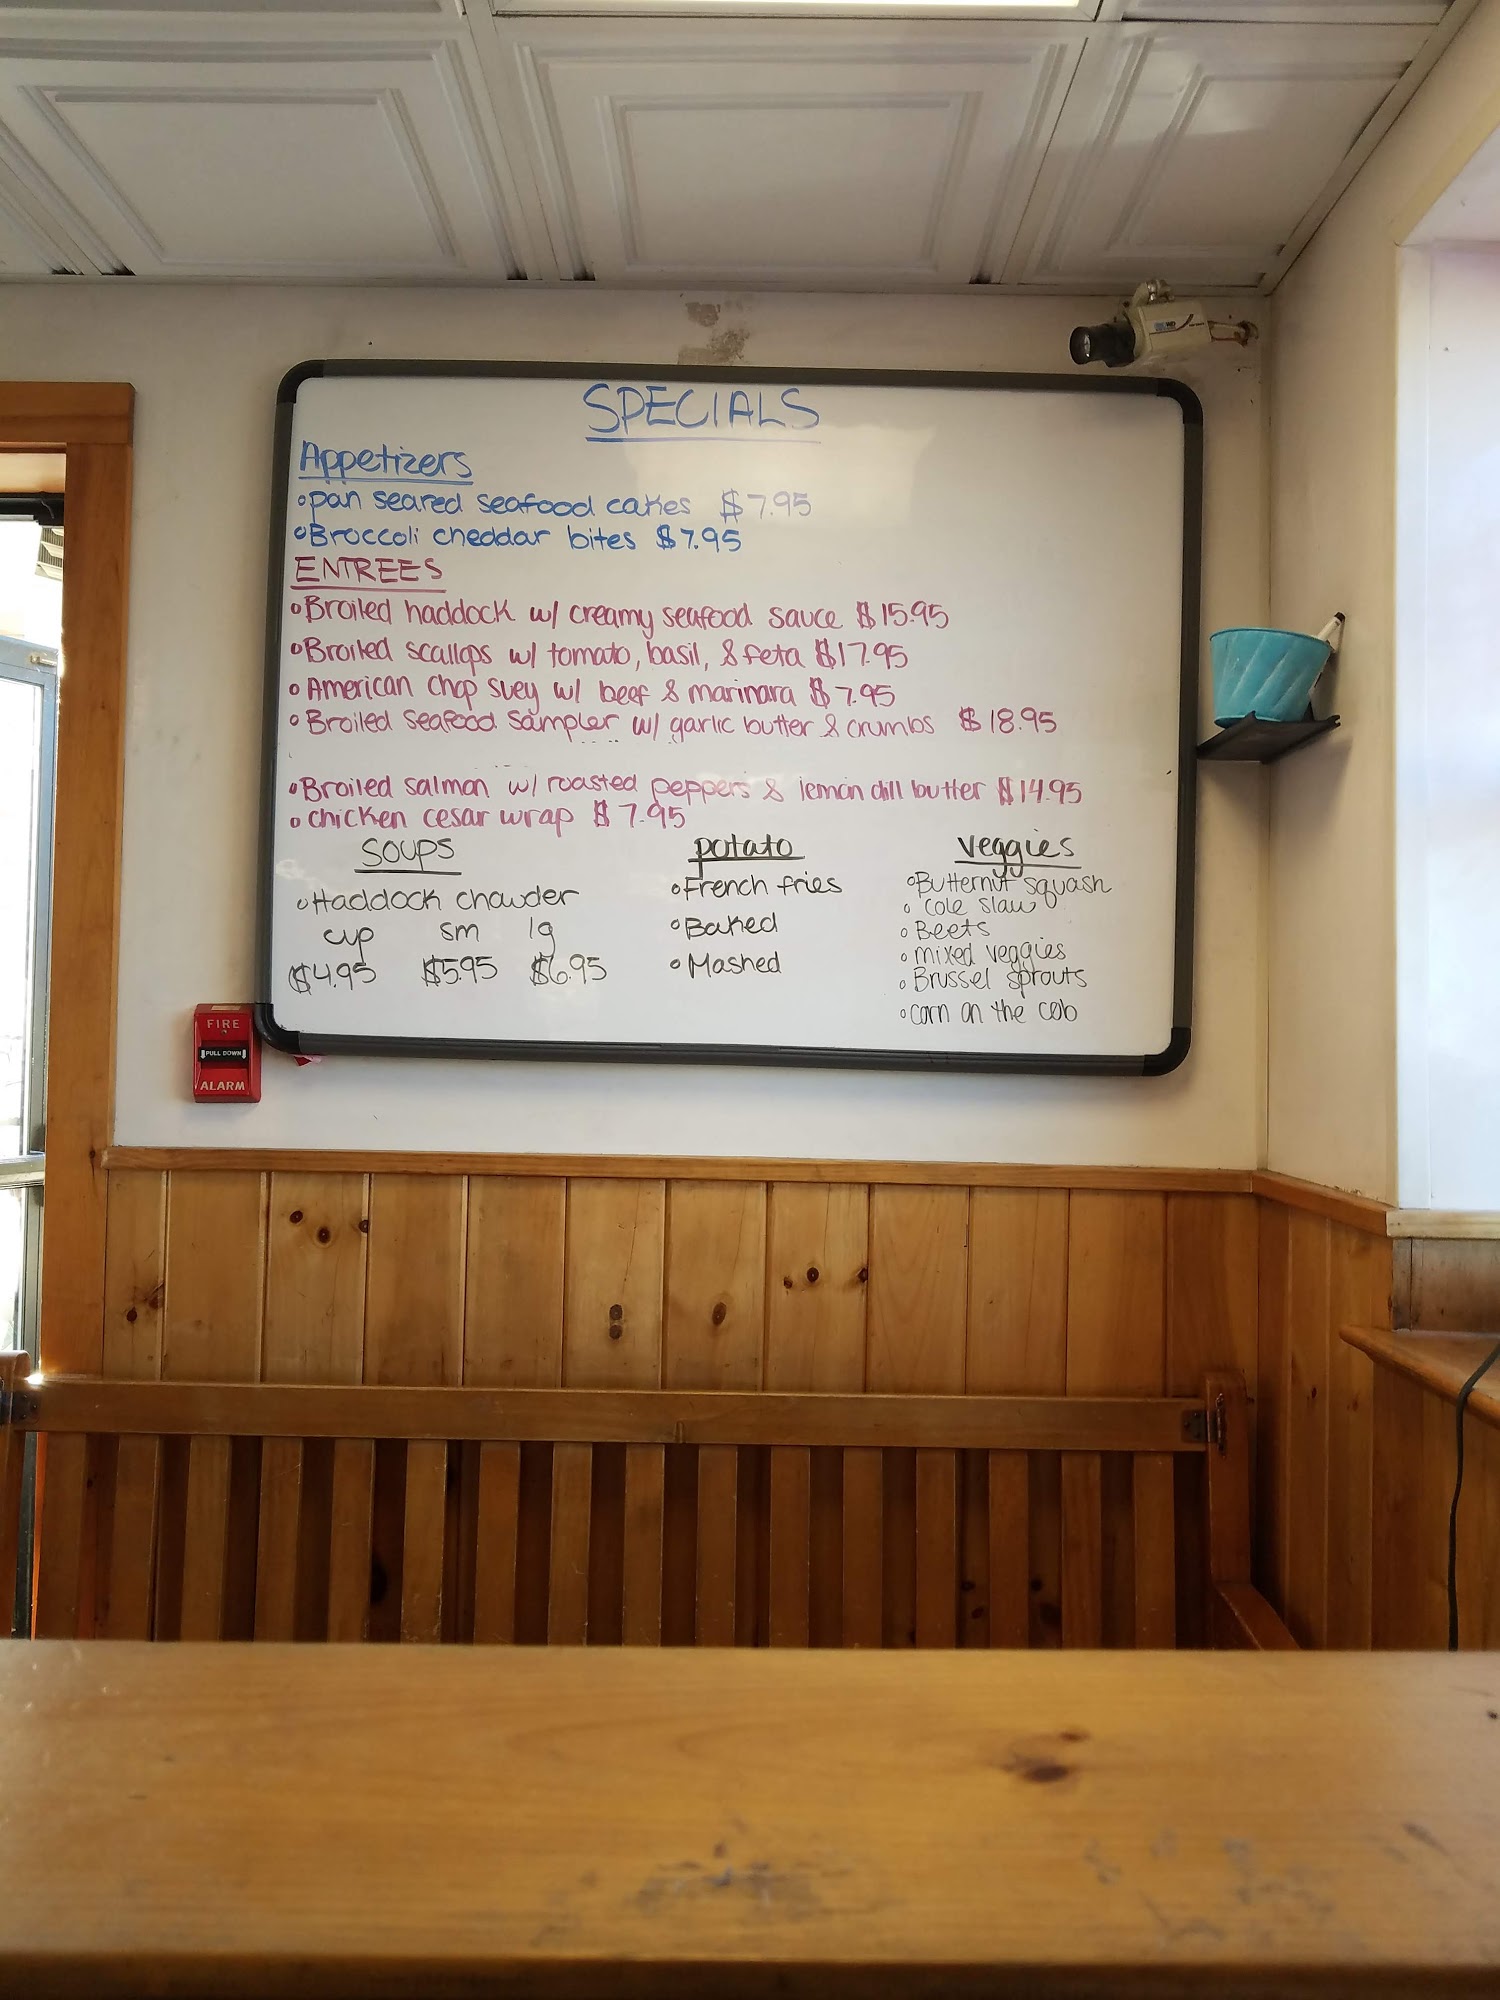 SPECIALS
Appetizers
◦pan seared seafood cakes $7.95
◦Broccoli cheddar bites $7.95
ENTREES
◦Broiled haddock w/ creamy seafood sauce $15.95
◦Broiled scallops w/ tomato, basil, & feta $17.95
◦American Chop Suey w/ beef & marinara $7.95
◦Broiled seafood sampler w/ garlic butter & crumbs $18.95
◦Broiled salmon w/ roasted peppers & lemon dill butter $14.95
◦chicken cesar wrap $7.95
Soups
◦Haddock chowder
cup sm lg
$4.95 $5.95 $6.95
potato
◦French fries
◦Baked
◦Mashed
veggies
◦Butternut squash
◦cole slaw
◦Beets
◦mixed veggies
◦Brussel sprouts
◦corn on the cob
FIRE
PULL DOWN
ALARM